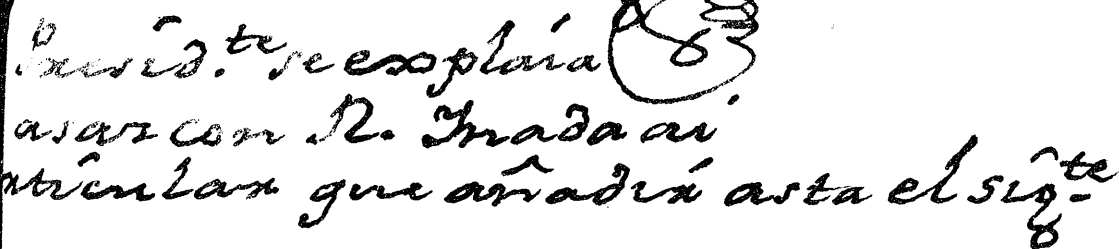 Presid.te se explaía
asar con N. Y nada ai
rticular que añadir asta el sigte